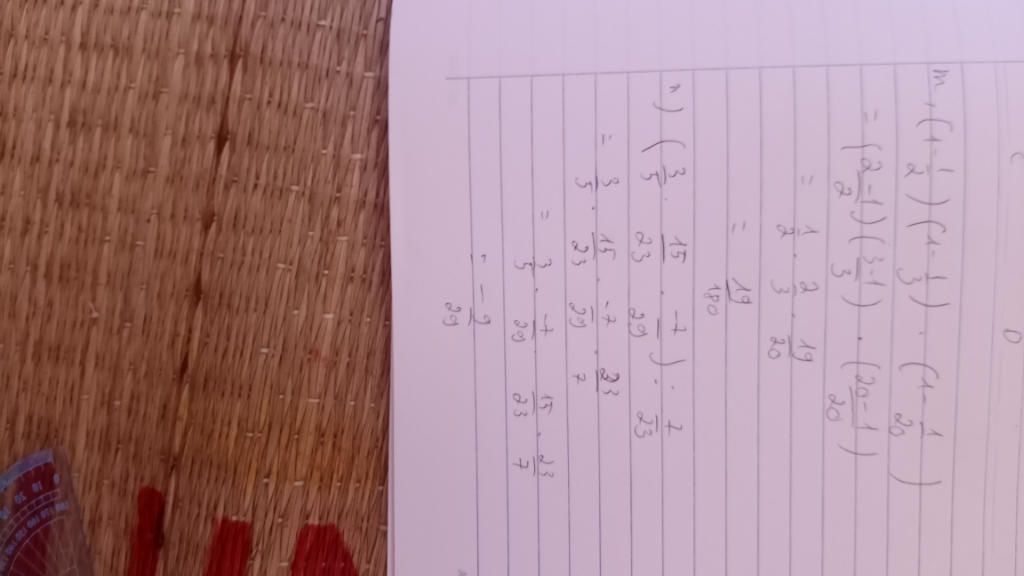 C D
m, (1 - 1/2) (1 - 1/3) . (1 - 1/20)
= (2-1/2) (3-1/3) . (20-1/20)
= 1/2 . 2/3 . 19/20
= 19/180
n) (3/5 . 15/23 . -7/29) : 7/23
= 3/5 . 15/23 . -7/29 . 23/7
= 3/5 . -7/29 . 15/23 . 23/7
= -9/29